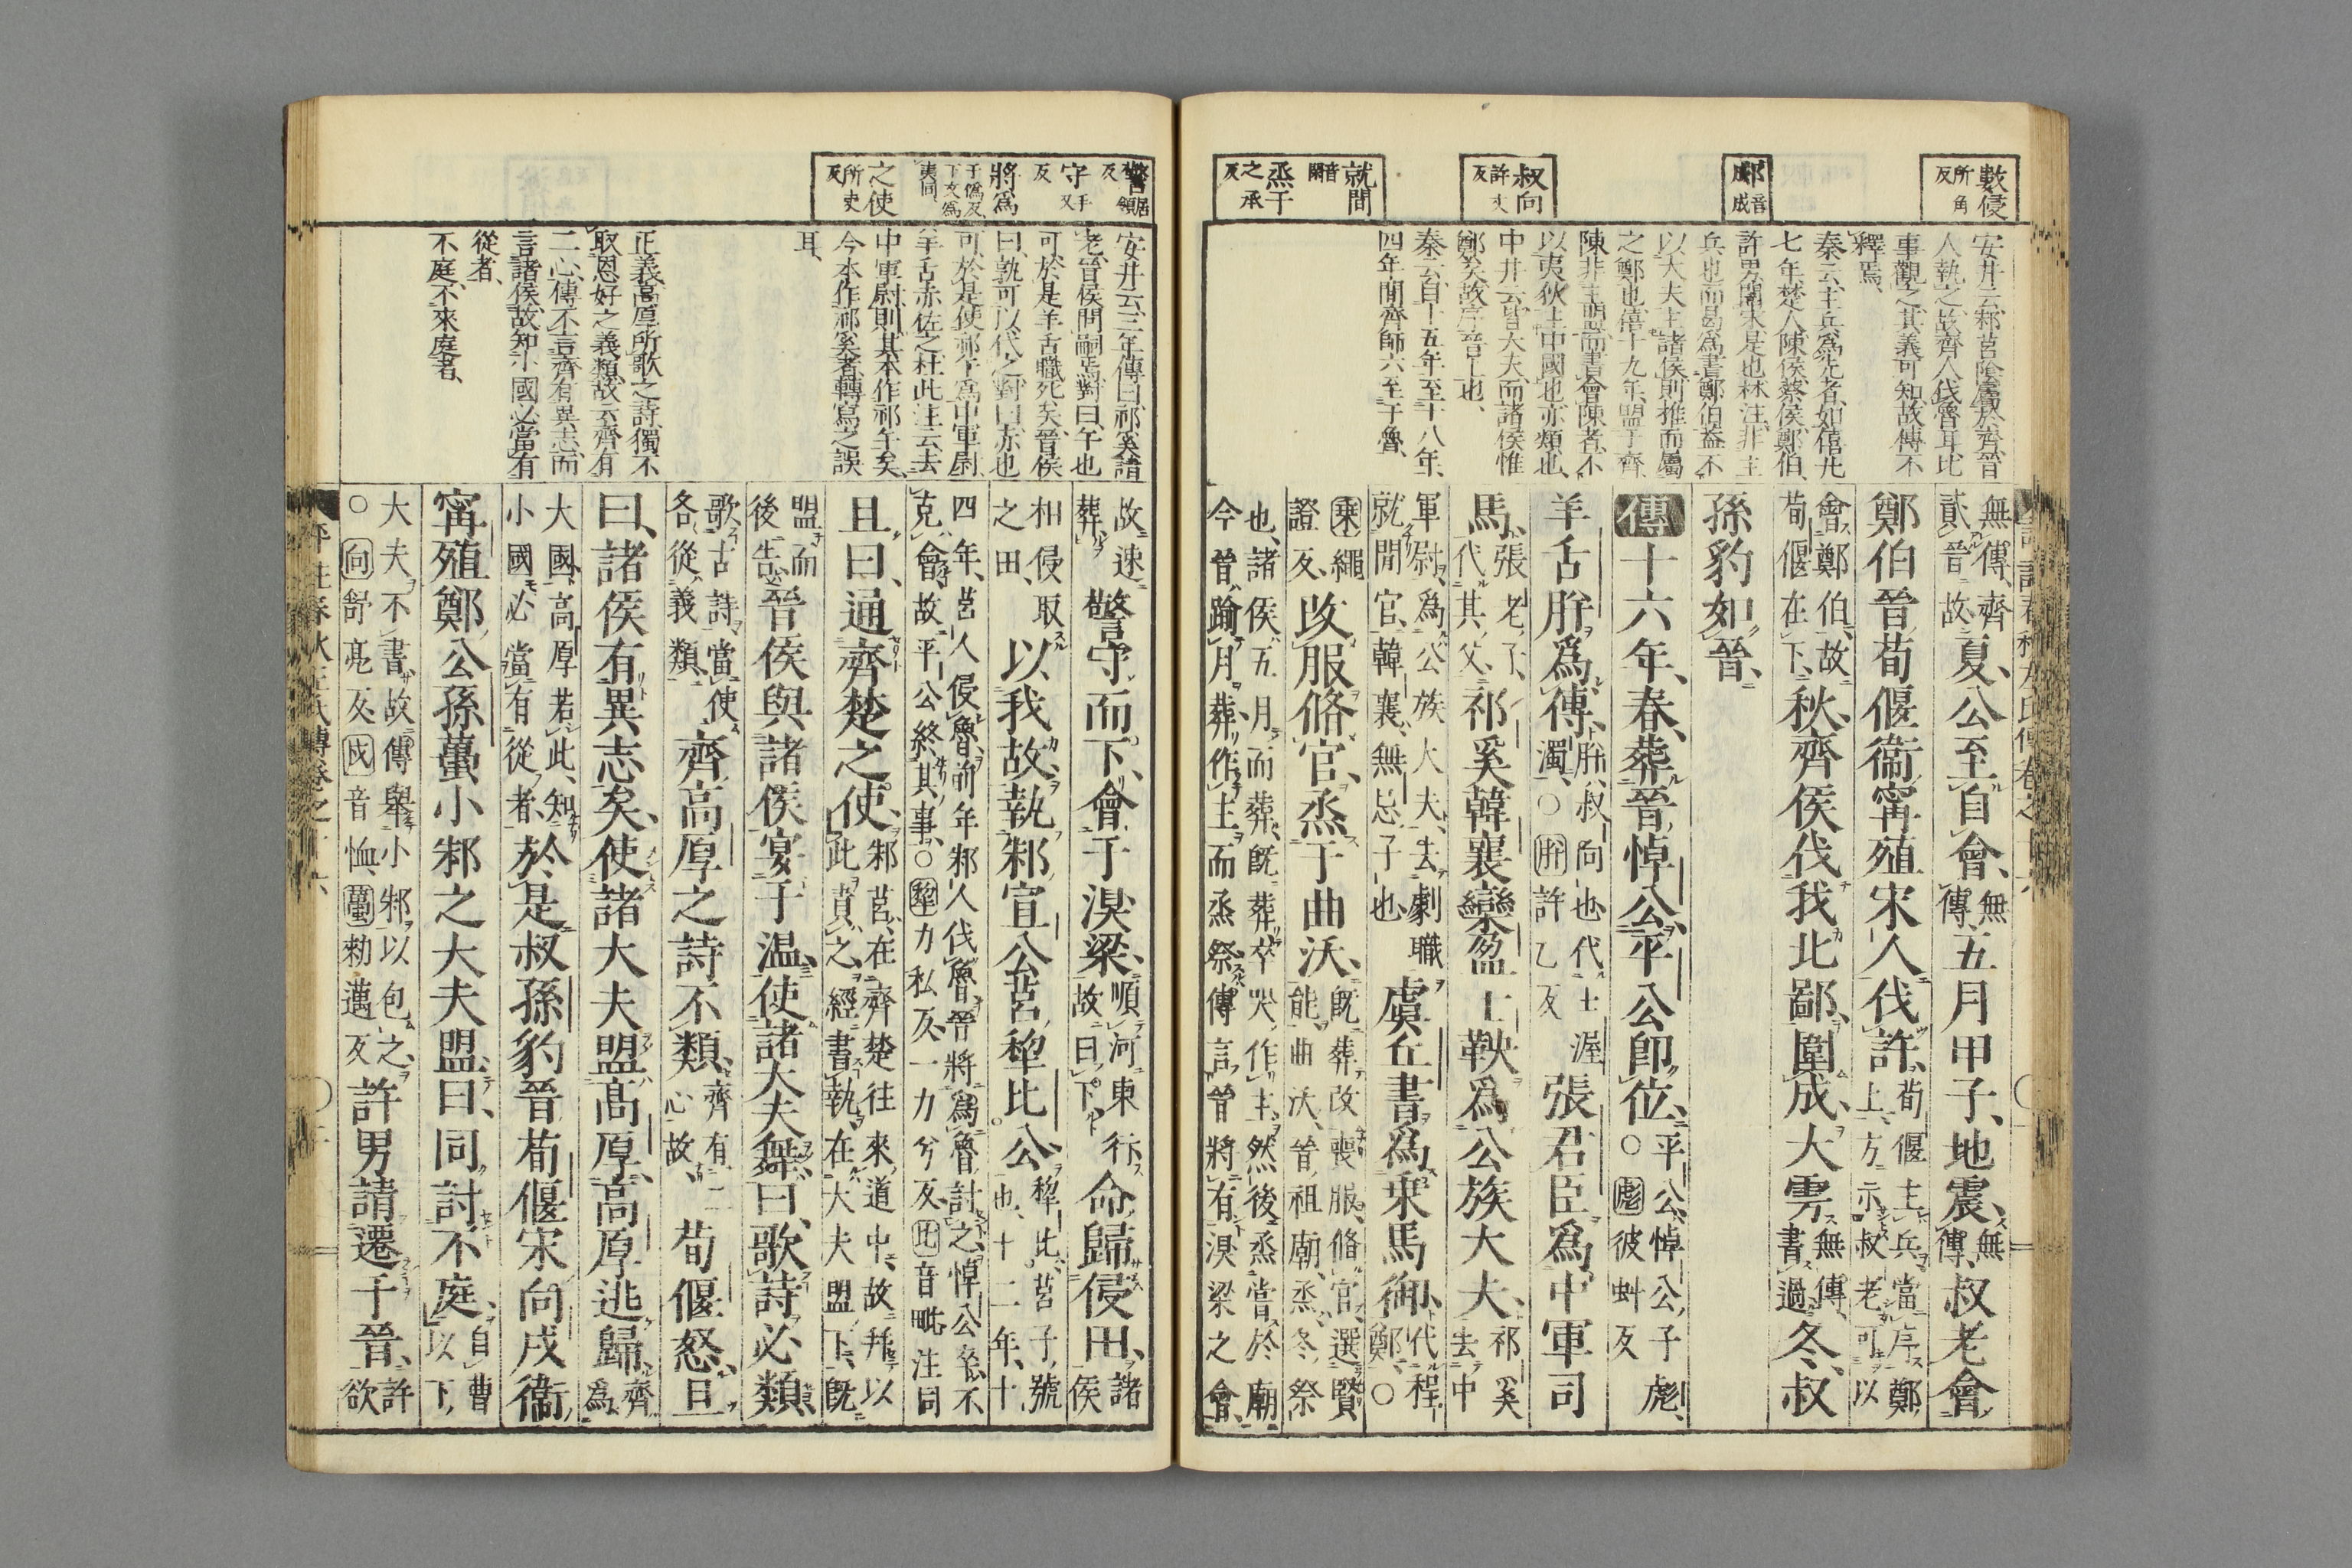 數侵 所角反
郕 音成
叔向 許丈反
就閒 音閑
烝于 之承反
安井云、邾莒陰屬於齊、晉
人執之、故齊人伐魯耳、比
事觀之、其義可知、故傳不
釋焉、
秦云、主兵爲先者、如僖廿
七年楚人陳侯蔡侯鄭伯、
許男圍宋是也、林注、非主
兵也、而曷爲書鄭伯、蓋不
以大夫主諸侯、則推而屬
之鄭也、僖十九年、盟于齊、
陳非主盟、而書會陳者、不
以夷狄主中國也、亦類也、
中井云、皆大夫而諸侯惟
鄭矣、故序晉上也、
秦云、自十五年至十八年、
四年閒齊師六至于魯、
無傳、齊
貳晉故、
夏、公至自會、
無傳、
五月甲子、地震、
無傳、
叔老會
鄭伯晉荀偃衞甯殖宋人伐許、
荀偃主兵、當序鄭
上、方示叔老可以
會鄭伯、故
荀偃在下、
秋、齊侯伐我北鄙、圍成、大雩、
無傳、
書過、
冬、叔
孫豹如晉、
傳十六年、春、葬晉悼公、平公卽位、
平公、悼公子彪、
○彪彼虯反
羊舌肸爲傅、
肸、叔向也、代士渥
濁、○肸許乙反
張君臣爲中軍司
馬、
張老子、
代其父、
祁奚韓襄欒盈士鞅爲公族大夫、
祁奚
去中
軍尉、爲公族大夫、去劇職
就閒官、韓襄、無忌子也、
虞丘書爲乘馬御、
代程
鄭、○
乘繩
證反、
改服脩官、烝于曲沃、
旣葬改喪服、脩官、選賢
能、曲沃、晉祖廟、烝、冬祭
也、諸侯五月而葬、旣葬卒哭、作主、然後烝嘗於廟
今晉踰月葬、作主而烝祭、傳言晉將有溴梁之會、
警 居領反
守 手又反
將爲 于僞反、下文爲夷同、
之使 所吏反
安井云、三年傳曰、祁奚請
老、晉侯問嗣焉、對曰、午也
可、於是羊舌職死矣、晉侯
曰、孰可以代之、對曰、赤也
可、於是使祁午爲中軍尉
羊舌赤佐之、杜此注云、去
中軍尉、則其本作祁午矣、
今本作祁奚者、轉寫之誤
耳、
正義、高厚所歌之詩、獨不
取恩好之義類、故云齊有
二心、傳不言齊有異志、而
言諸侯、故知小國必當有
從者、
不庭、不來庭者、
故速
葬、
警守而下、會于溴梁、
順河東行、
故曰下、
命歸侵田、
諸
侯
相侵取
之田、
以我故、執邾宣公莒犂比公、
犂比、莒子號
也、十二年、十
四年、莒人侵魯、前年邾人伐魯、晉將爲魯討之、悼公卒、不
克會、故平公終其事、○犂力私反、一力兮反、比音毗、注同
且曰、通齊楚之使、
邾莒、在齊楚往來道中、故幷以
此責之、經書執、在大夫盟下、旣
盟而
後告、
晉侯與諸侯宴于温、使諸大夫舞、曰、歌詩必類、
歌古詩、當使
各從義類、
齊高厚之詩不類、
齊有二
心故、
荀偃怒、且
曰、諸侯有異志矣、使諸大夫盟高厚、高厚逃歸、
齊
爲
大國、高厚若此、知
小國必當有從者、
於是叔孫豹晉荀偃宋向戌衞
甯殖鄭公孫蠆小邾之大夫盟、曰、同討不庭、
自曹
以下、
大夫不書、故傳舉小邾以包之、
○向舒亮反、戌音恤、蠆勑邁反
許男請遷于晉、
許
欲